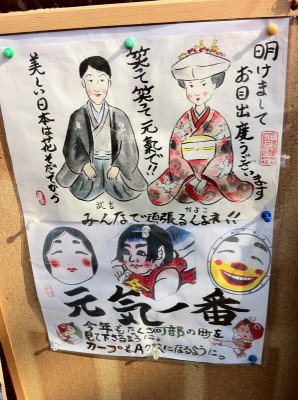 明けまして
お目出度うございます
笑って笑って元氣で!!
美しい日本は花そだてから
かよこ
みんなで頑張る
元気一番
今年もたくさん可部の町を
見て下さるように。
カープもAクラスになるように。